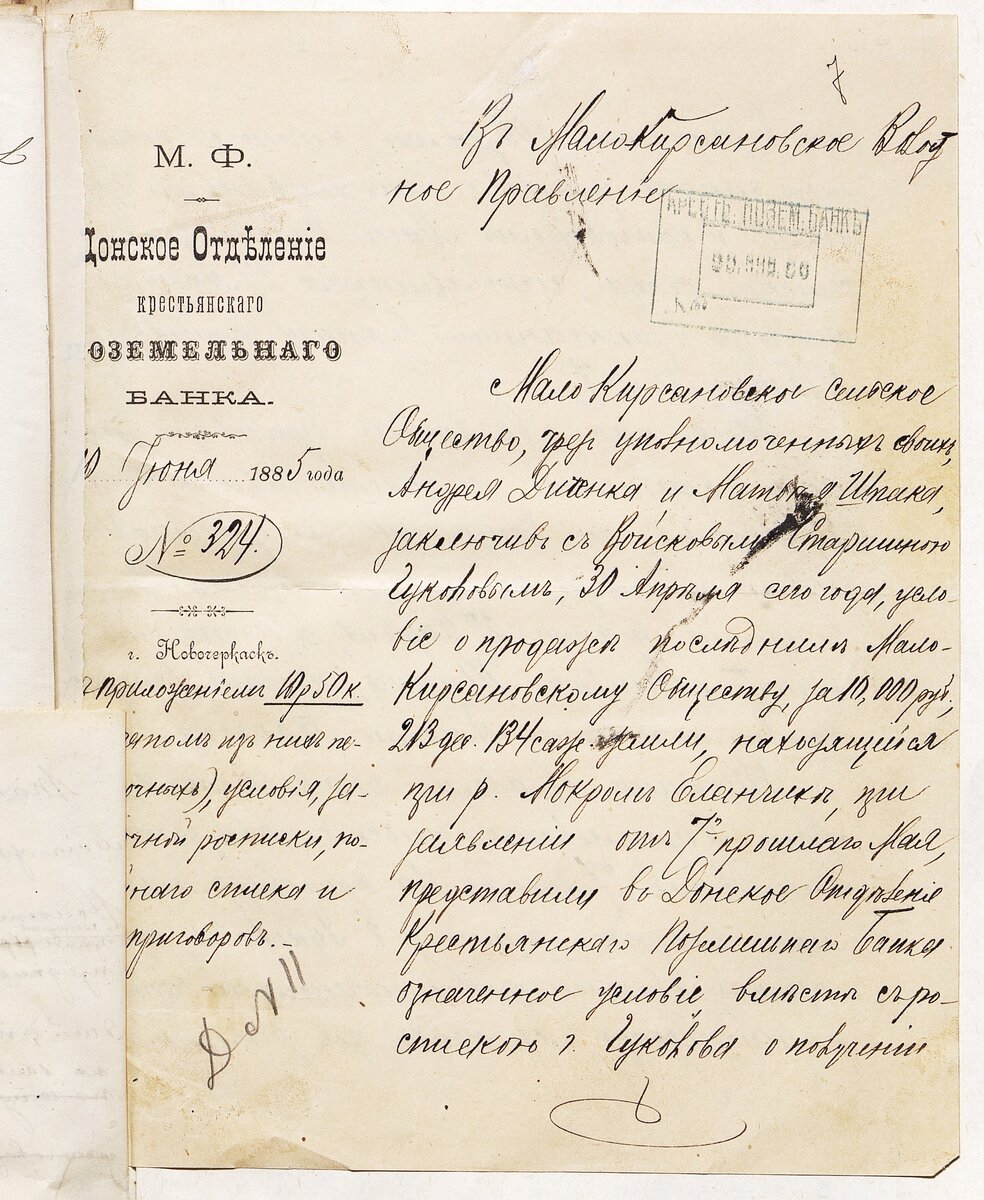 7
М. Ф.
Донское Отдѣленіе
крестьянскаго
ОЗЕМЕЛЬНАГО
БАНКА.
10 Іюня 1885 года
№ 324.
г. Новочеркаскъ.
приложеніемъ 10 р 50 к
изъ нихъ пе-
условія, за-
росписки, по-
наго списка и
приговоровъ.
Д № 11
Въ Мало Кирсановское Волост
ное Правленіе
КРЕСТ. ПОЗЕМ. БАНКЪ
Мало Кирсановское сельское
Общество, чрез уполномоченныхъ своихъ,
Андрея и Матвѣя Шпака,
заключивъ съ Войсковымъ Старшиною
Чукововымъ, 30 Апрѣля сего года, усло-
віе о продажѣ послѣднимъ Мало-
Кирсановскому Обществу, за 10,000 руб.,
213 дес. 134 саж. земли, находящейся
при р. Мокромъ Еланчикѣ, при
заявленіи отъ 7го прошлаго Мая,
представили въ Донское Отдѣленіе
Крестьянскаго Поземельнаго Банка
означенное условіе вмѣстѣ съ ро-
спискою г. Чуковова о полученіи